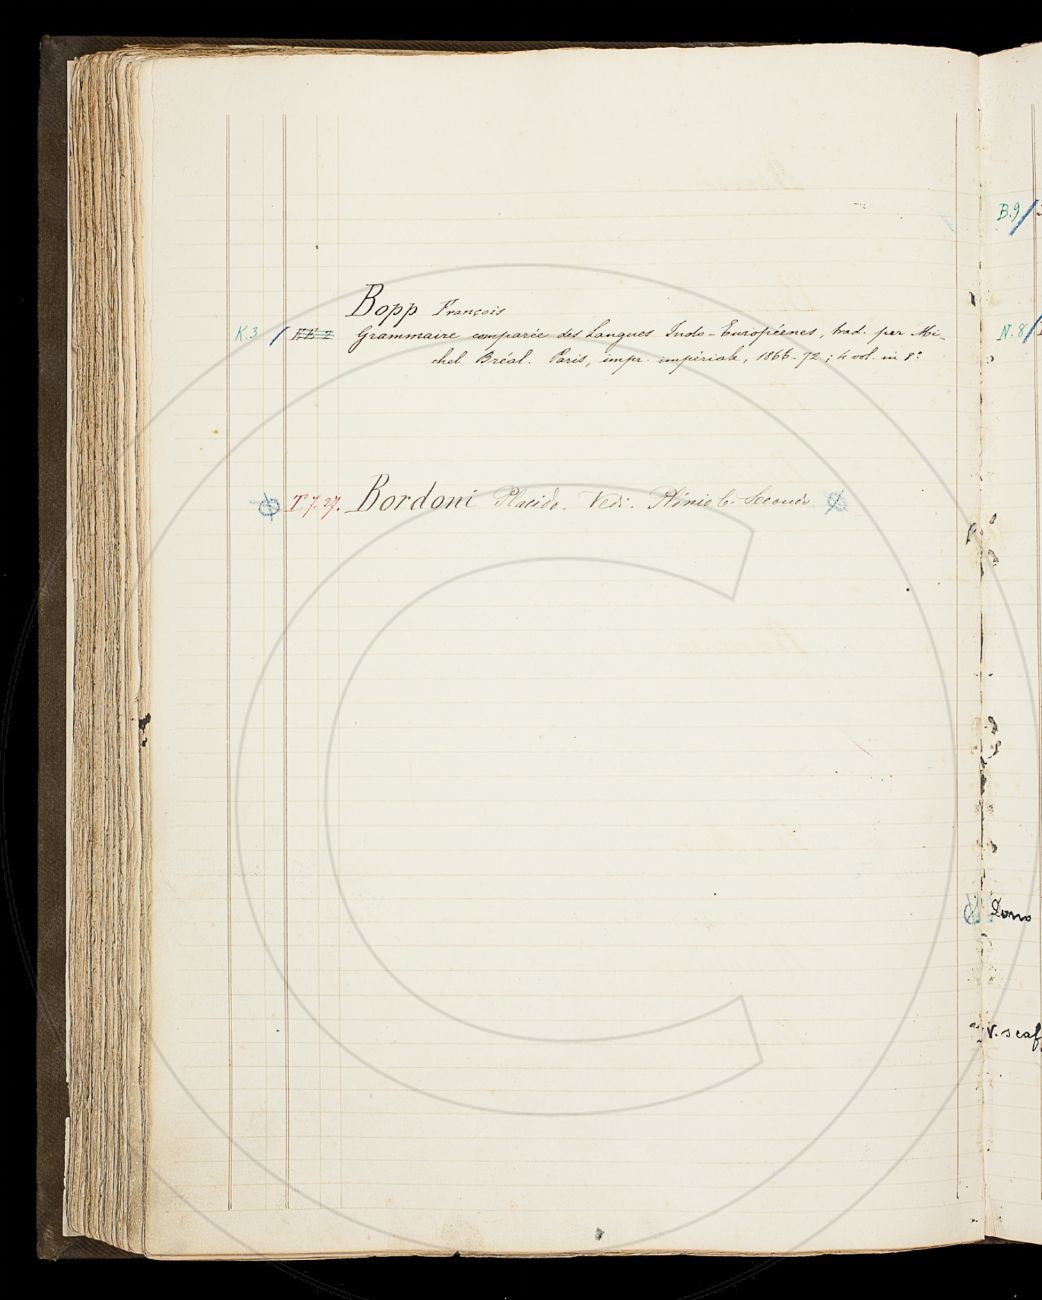 Bopp François
K.3 / Grammaire comparée des Langues Indo-Européenes, trad. par Mi-
chel Bréal. Paris, impr. impériale, 1866-72; 4 vol. in 8°
T.7.27. Bordoni Placido. Vedi: Plinio C. Secondo.
B.9/
N.8/
Dono
v. scaf